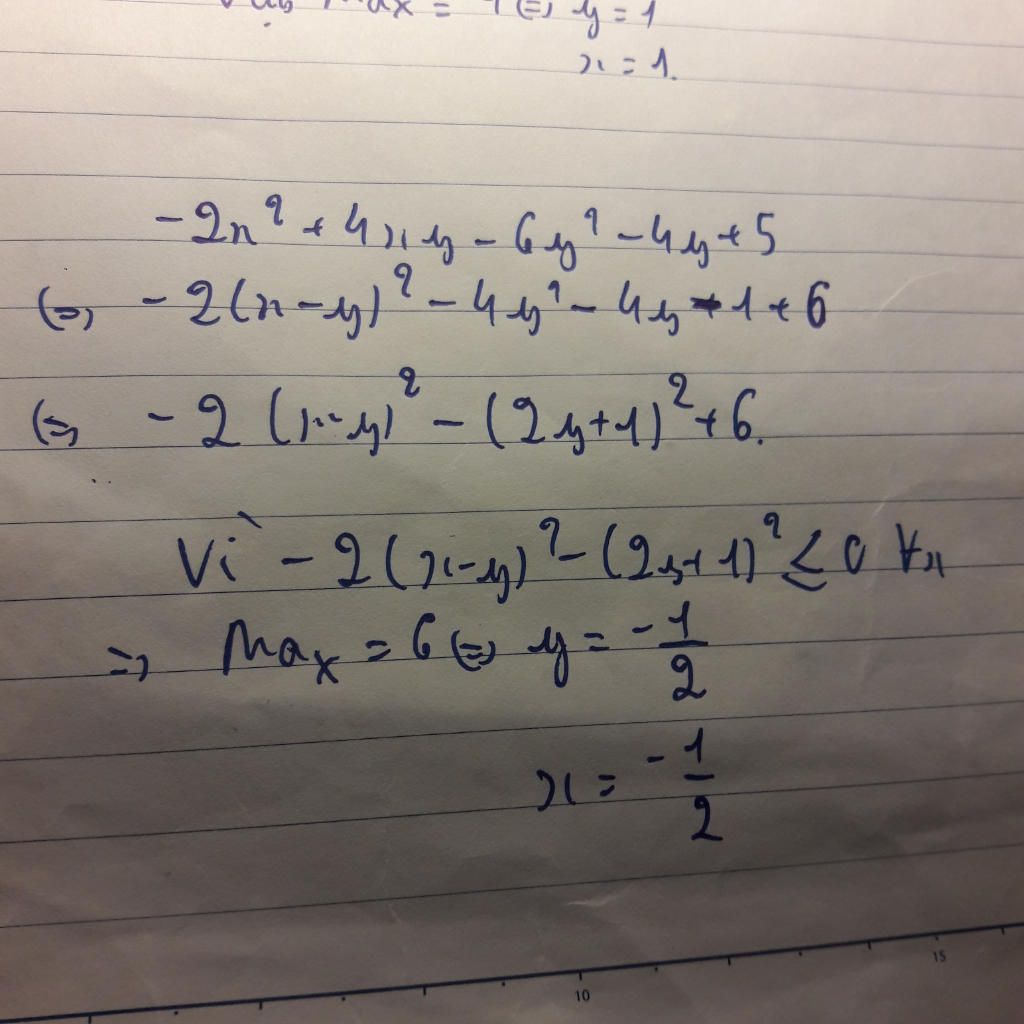 Max = 1 (=) y = 1
x = 1.
-2x² + 4xy - 6y² - 4y + 5
(=) -2(x-y)² - 4y² - 4y - 1 + 6
(=) -2(x-y)² - (2y+1)² + 6.
Vì -2(x-y)² - (2y+1)² ≤ 0 ∀x
=) Max = 6 (=) y = -1/2
x = -1/2
10 15